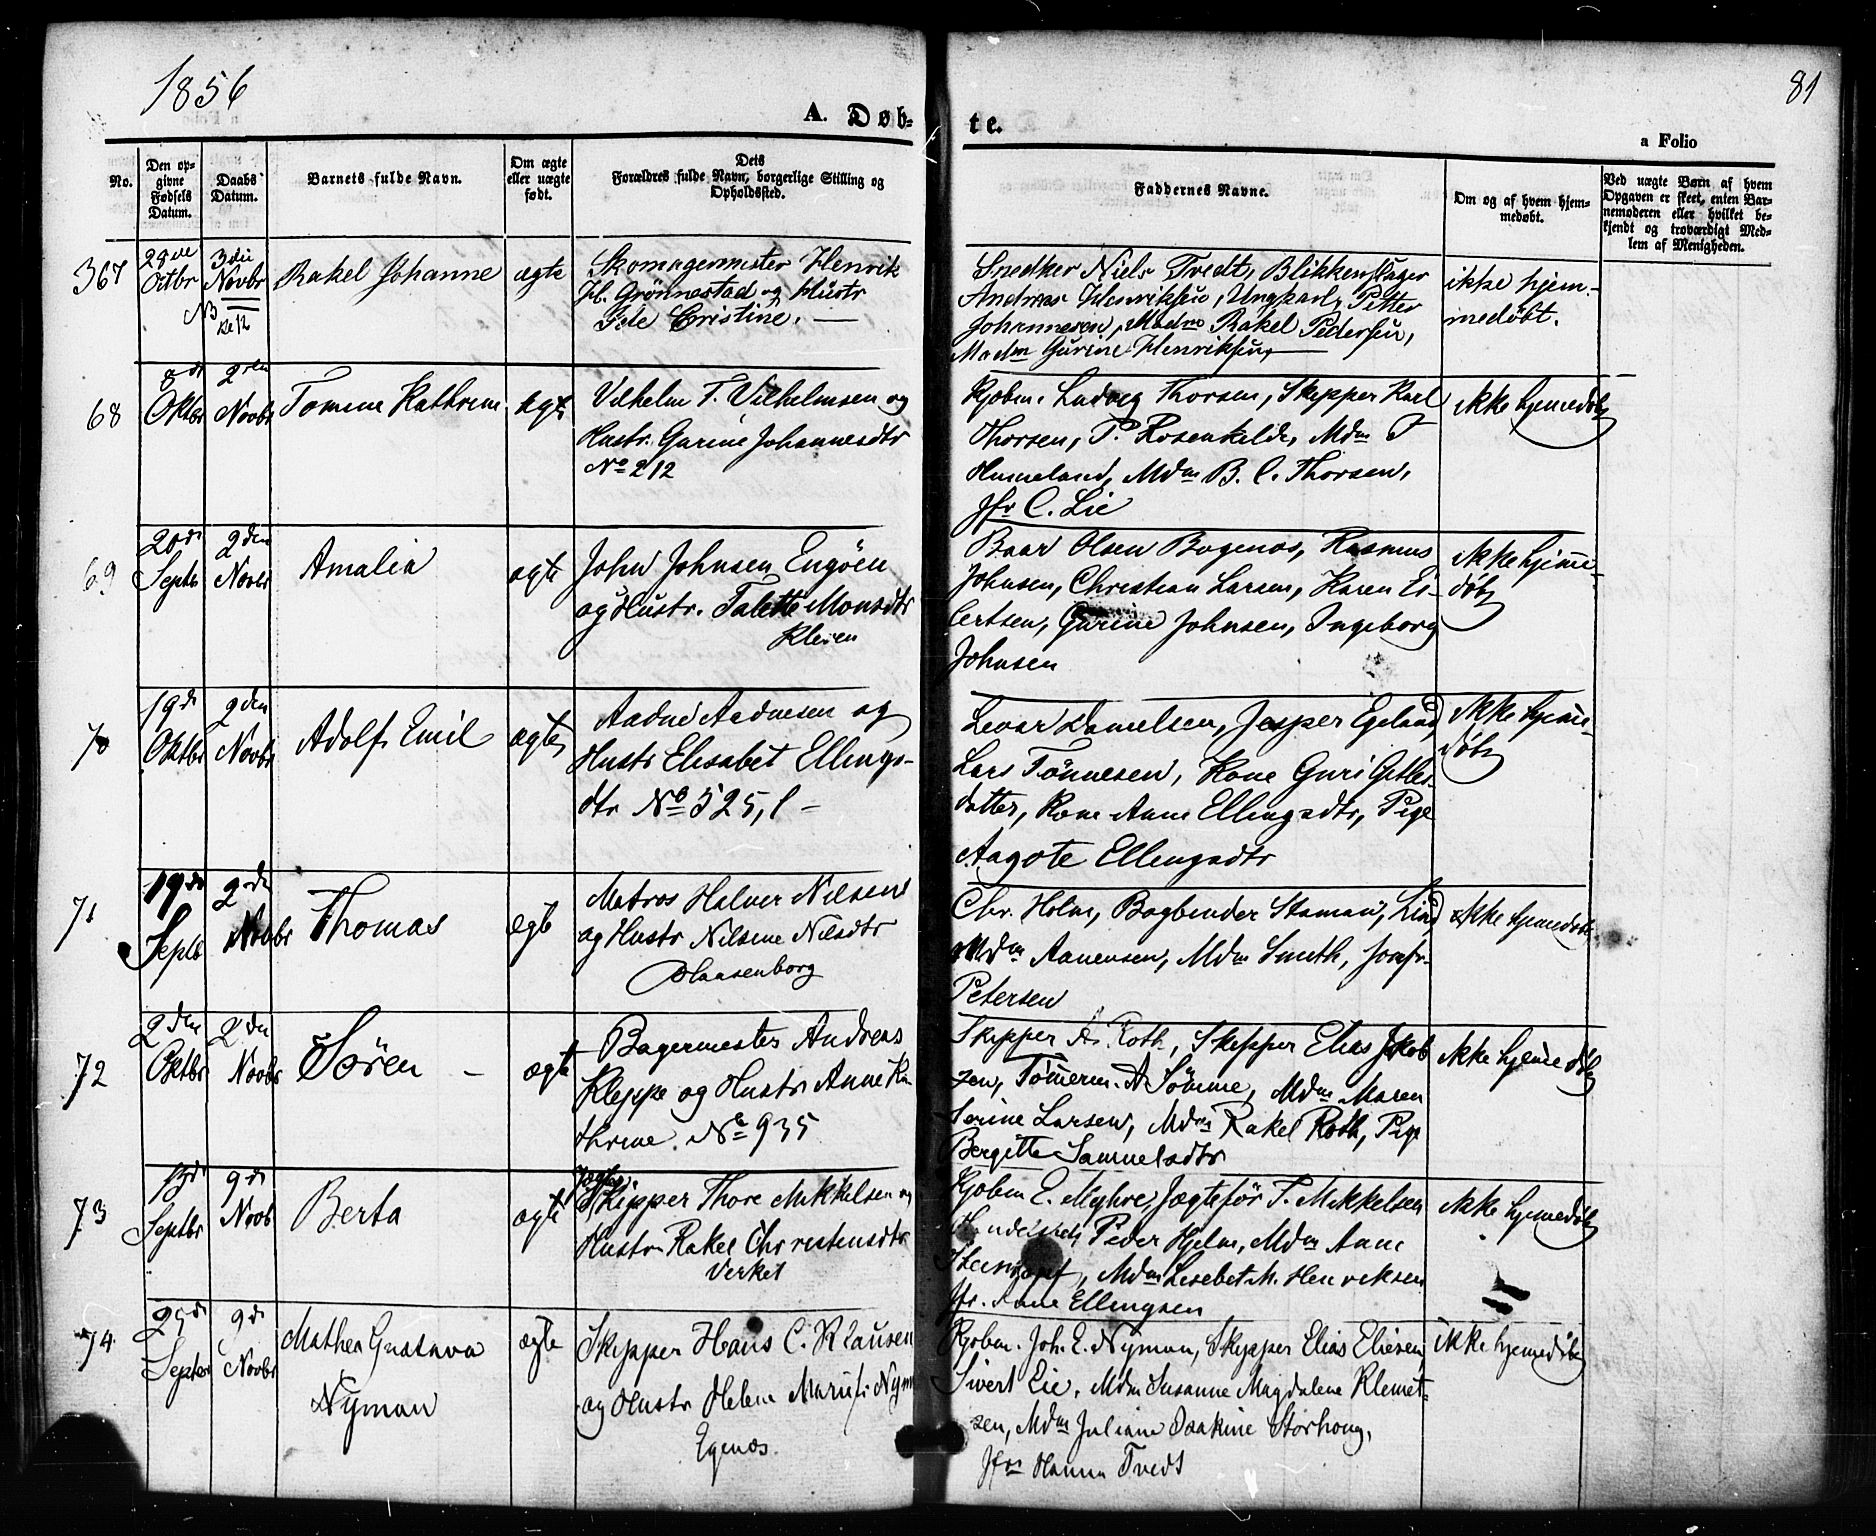 1856
81
A. Døb-
te.
a Folio
No.
Den op-
givne
Fødsels
Datum.
Daabs
Datum.
Barnets fulde Navn.
Om ægte
eller uægte
født.
Dets
Forældres fulde Navn, borgerlige Stilling og
Opholdssted.
Faddernes Navne.
Om og af hvem hjem-
medøbt.
Ved uægte Børn af hvem
Opgaven er skeet, enten Bar-
nemoderen eller hvilket be-
kjendt og troværdigt Med-
lem af Menigheden.
367
Octbr
3die
Novbr
Rakel Johanne
ægte
Skomagermester Henrik
H. Grönnestad og Hustr
Cristine.
Snedker Niels Tvedt, Blikkenslager
Andreas Henriksen, Ungkarl Petter
Johannesen, Madm Rakel Pedersen,
Madm Gurine Henriksen,
ikke hjem-
medøbt.
68
8de
Oktbr
2den
Novbr
Tomine Kathrine
ægte
Vilhelm T. Vilhelmsen og
Hustr. Gurine Johannesdtr
No 212
Kjobm. Ludvig Thorsen, Skipper Karl
Thorsen, P. Rosenkilde, Mdm T
Hunneland, Mdm B. C. Thorsen,
Jfr C. Lie
ikke hjemedøbt
69
20de
Septbr
2den
Novbr
Amalia
ægte
John Johnsen Engöen
og Hustr. Talette Monsdtr
Kleven
Baar Olsen Bogenæs, Rasmus
Johnsen, Christian Larsen, Karen Ei-
lertsen, Gurine Johnsen, Ingeborg
Johnsen
ikke hjeme-
døbt
70
19de
Oktbr
2den
Novbr
Adolf Emil
ægte
Aadne Aadnesen og
Hustr Elisabet Ellings-
dtr No 525, l -
Levar Danielsen, Jesper Egeland,
Lars Tönnesen, Kone Guri Gitles-
datter, Kone Anne Ellingsdtr, Pige
Aagote Ellingsdtr
ikke hjeme-
døbt
71
19de
Septb
2den
Novbr
Thomas
ægte
Matros Halvor Nilsen
og Hustr Nilsine Nilsdtr
Blaasenborg
Chr. Holm, Bogbinder Lind
Mdm Aanensen, Mdm Smith, Jomfr
Petersen
ikke hjemedøbt
72
2den
Oktbr
2den
Novbr
Sören -
ægte
Bagermester Andreas
Kleppe og Hustr Anne Ka-
thrine. No 935
Skipper A. Roth, Skipper Elias Jakob-
sen, Tömerm. A Sömme, Mdm Maren
Serine Larsen, Mdm Rakel Roth, Pige
Bergitte Samuelsdtr
ikke hjemedøbt
73
13de
Septbr
9de
Novb
Berta
ægte
Skipper Thore Mikkelsen og
Hustr Rakel Chrestensdtr
Verket
Kjobm E. Meyhre, Jægteför T. Mikkelsen
Peder Hjelm, Mdm Anne
Mdm Lisebet M. Henriksen
Jfr. Anne Ellingsen
ikke hjemedøbt
74
25de
Septbr
9de
Novbr
Mathea Gustava
Nyman
ægte
Skipper Hans C. Klausen
og Hustr Helene
Egenæs.
Kjobm. Joh. E. Nyman, Skipper Elias Eliesen,
Sivert Lie, Mdm Susanne Magdalene Klemet-
sen, Mdm Juliane Isakine Storhoug,
Jfr Hanna Tvedt
ikke hjemedøbt